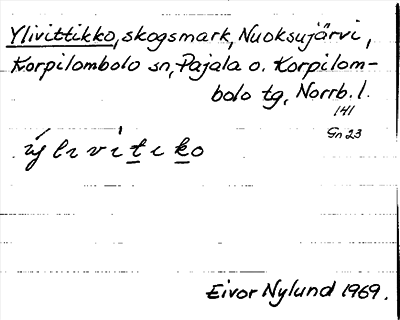 Ylivittikko, skogsmark, Nuoksujärvi,
Korpilombolo sn, Pajala o. Korpilom-
bolo tg, Norrb. l.
141
Gn 23
ýlivítiko
Eivor Nylund 1969.